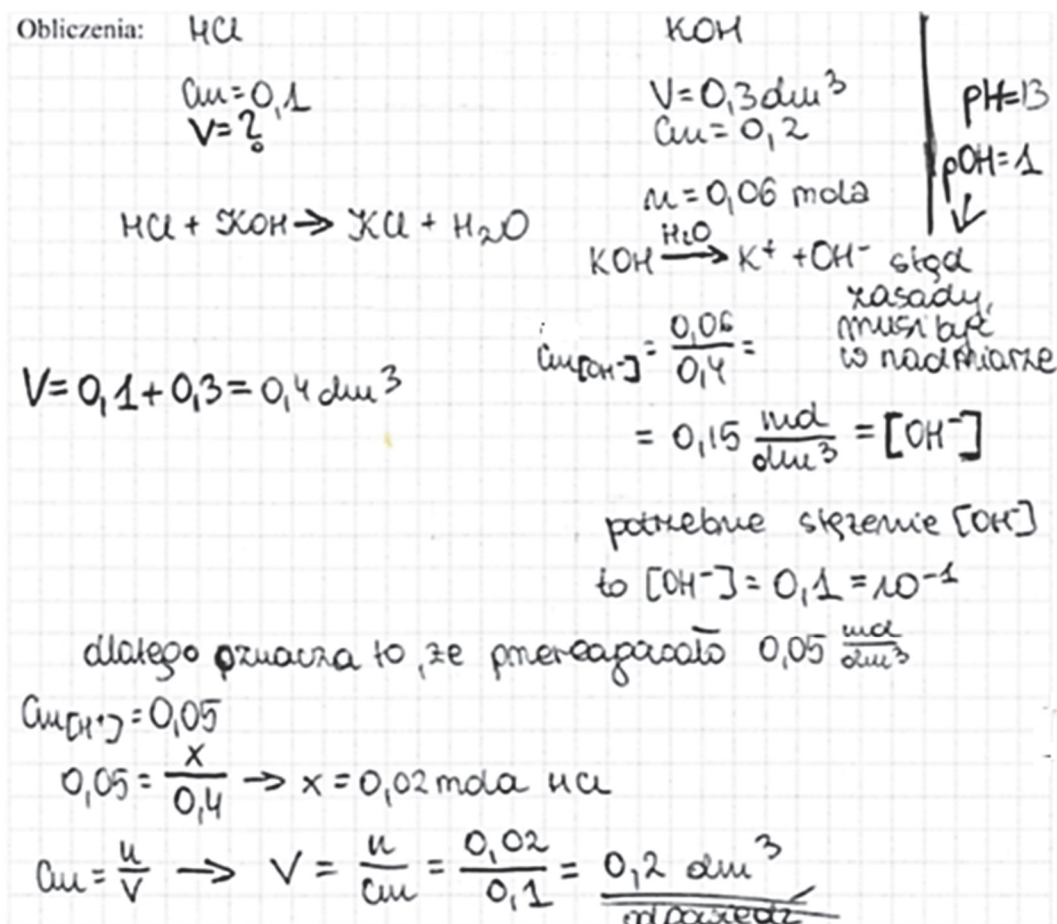 Obliczenia: HCl
KOH
Cm=0,1
V=?
V=0,3dm³
Cm=0,2
n=0,06 mola
pH=13
pOH=1
↓
HCl + KOH → KCl + H₂O
KOH H₂O→ K⁺ + OH⁻ stąd
zasady,
musi być
w nadmiarze
Cm[OH⁻] = 0,06/0,4 =
V=0,1+0,3=0,4dm³
= 0,15 mol/dm³ = [OH⁻]
potrzebne stężenie [OH⁻]
to [OH⁻]=0,1=10⁻¹
dlatego oznacza to, że przereagowało 0,05 mol/dm³
Cm[H⁺]=0,05
0,05 = x/0,4 → x=0,02mola HCl
Cm = n/V → V = n/Cm = 0,02/0,1 = 0,2 dm³
odpowiedź